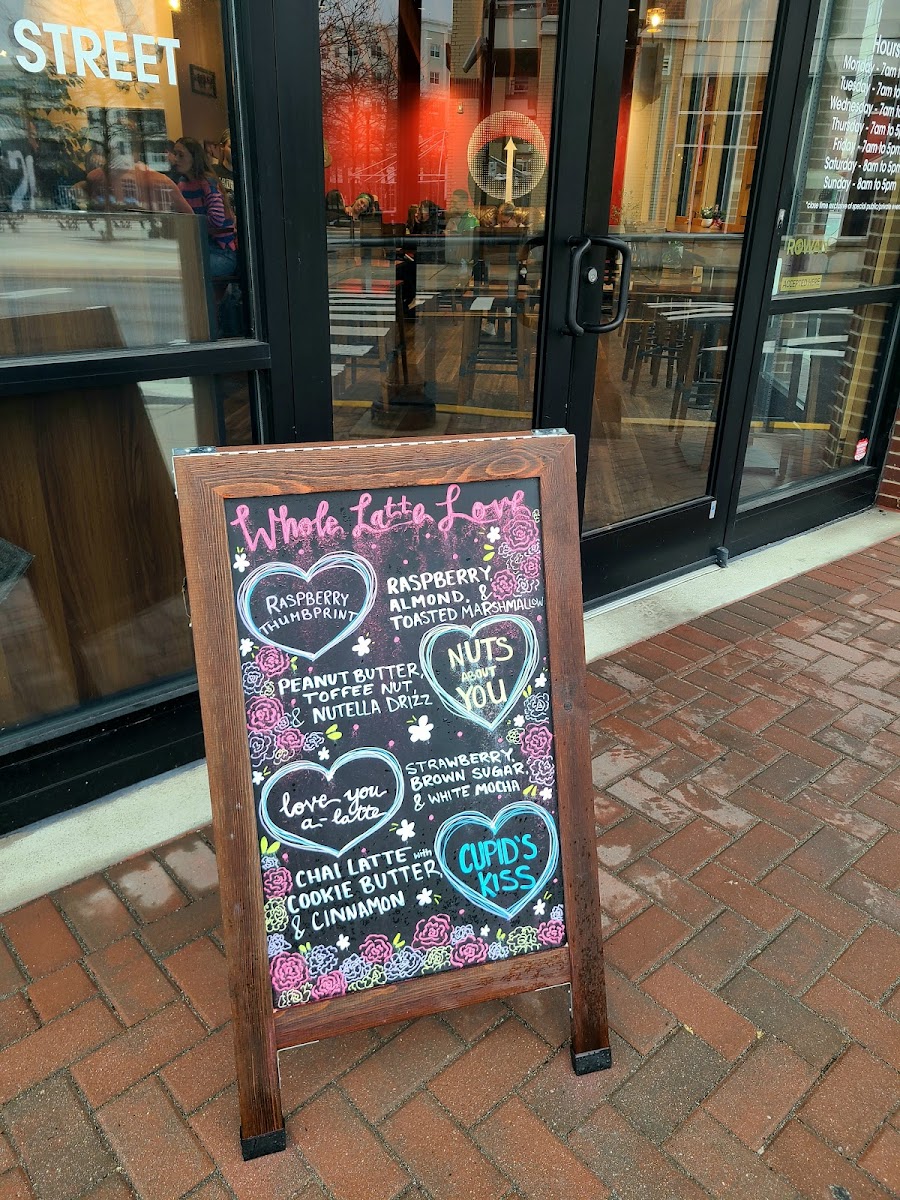 STREET
Hours
Monday - 7am
Tuesday - 7am to
Wednesday - 7am to
Thursday - 7am to 5pm
Friday - 7am to 5pm
Saturday - 8am to 5pm
Sunday - 8am to 5pm
ROWAN
ACCEPTED HERE
Whole Latte Love
RASPBERRY
THUMBPRINT
RASPBERRY,
ALMOND, &
TOASTED MARSHMALLOW
NUTS
ABOUT
YOU
PEANUT BUTTER,
TOFFEE NUT,
& NUTELLA DRIZZ
love you
a-latte
STRAWBERRY,
BROWN SUGAR,
& WHITE MOCHA
CHAI LATTE with
COOKIE BUTTER
& CINNAMON
CUPID'S
KISS